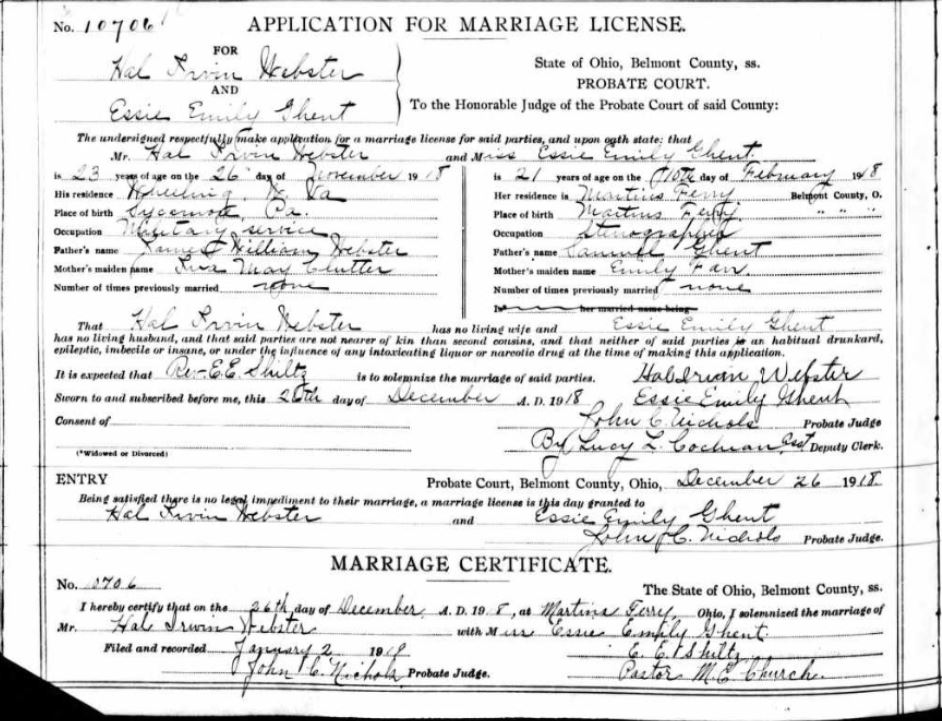 No. 10706
APPLICATION FOR MARRIAGE LICENSE.
FOR
Hal Irvin Webster
AND
Essie Emily Ghent
State of Ohio, Belmont County, ss.
PROBATE COURT.
To the Honorable Judge of the Probate Court of said County:
The undersigned respectfully make application for a marriage license for said parties, and upon oath state: that
Mr. Hal Irvin Webster and Miss Essie Emily Ghent.
is 23 years of age on the 26" day of November 1918
His residence Wheeling, W Va
Place of birth Pa.
Occupation Military service
Father's name James William Webster
Mother's maiden name May Clutter
Number of times previously married none
is 21 years of age on the 10th day of February 1918
Her residence is Martins Ferry Belmont County, O.
Place of birth Martins Ferry, " " "
Occupation Stenographer
Father's name Samuel Ghent
Mother's maiden name Emily Farr
Number of times previously married none
her married name being
That Hal Irvin Webster has no living wife and Essie Emily Ghent
has no living husband, and that said parties are not nearer of kin than second cousins, and that neither of said parties is an habitual drunkard,
epileptic, imbecile or insane, or under the influence of any intoxicating liquor or narcotic drug at the time of making this application.
It is expected that Rev. E.E. Shiltz is to solemnize the marriage of said parties. Hal Irvin Webster
Sworn to and subscribed before me, this 26th day of December A. D. 1918 Essie Emily Ghent
Consent of John C. Nichols Probate Judge
By Lucy L. Cochran Asst Deputy Clerk.
(*Widowed or Divorced)
ENTRY Probate Court, Belmont County, Ohio, December 26 1918
Being satisfied there is no legal impediment to their marriage, a marriage license is this day granted to
Hal Irvin Webster and Essie Emily Ghent
John C. Nichols Probate Judge.
MARRIAGE CERTIFICATE.
No. 10706 The State of Ohio, Belmont County, ss.
I hereby certify that on the 26th day of December A. D. 1918, at Martins Ferry, Ohio, I solemnized the marriage of
Mr. Hal Irvin Webster with Miss Essie Emily Ghent.
Filed and recorded January 2 1919 E. E. Shiltz
John C. Nichols Probate Judge. Pastor M.E. Church.